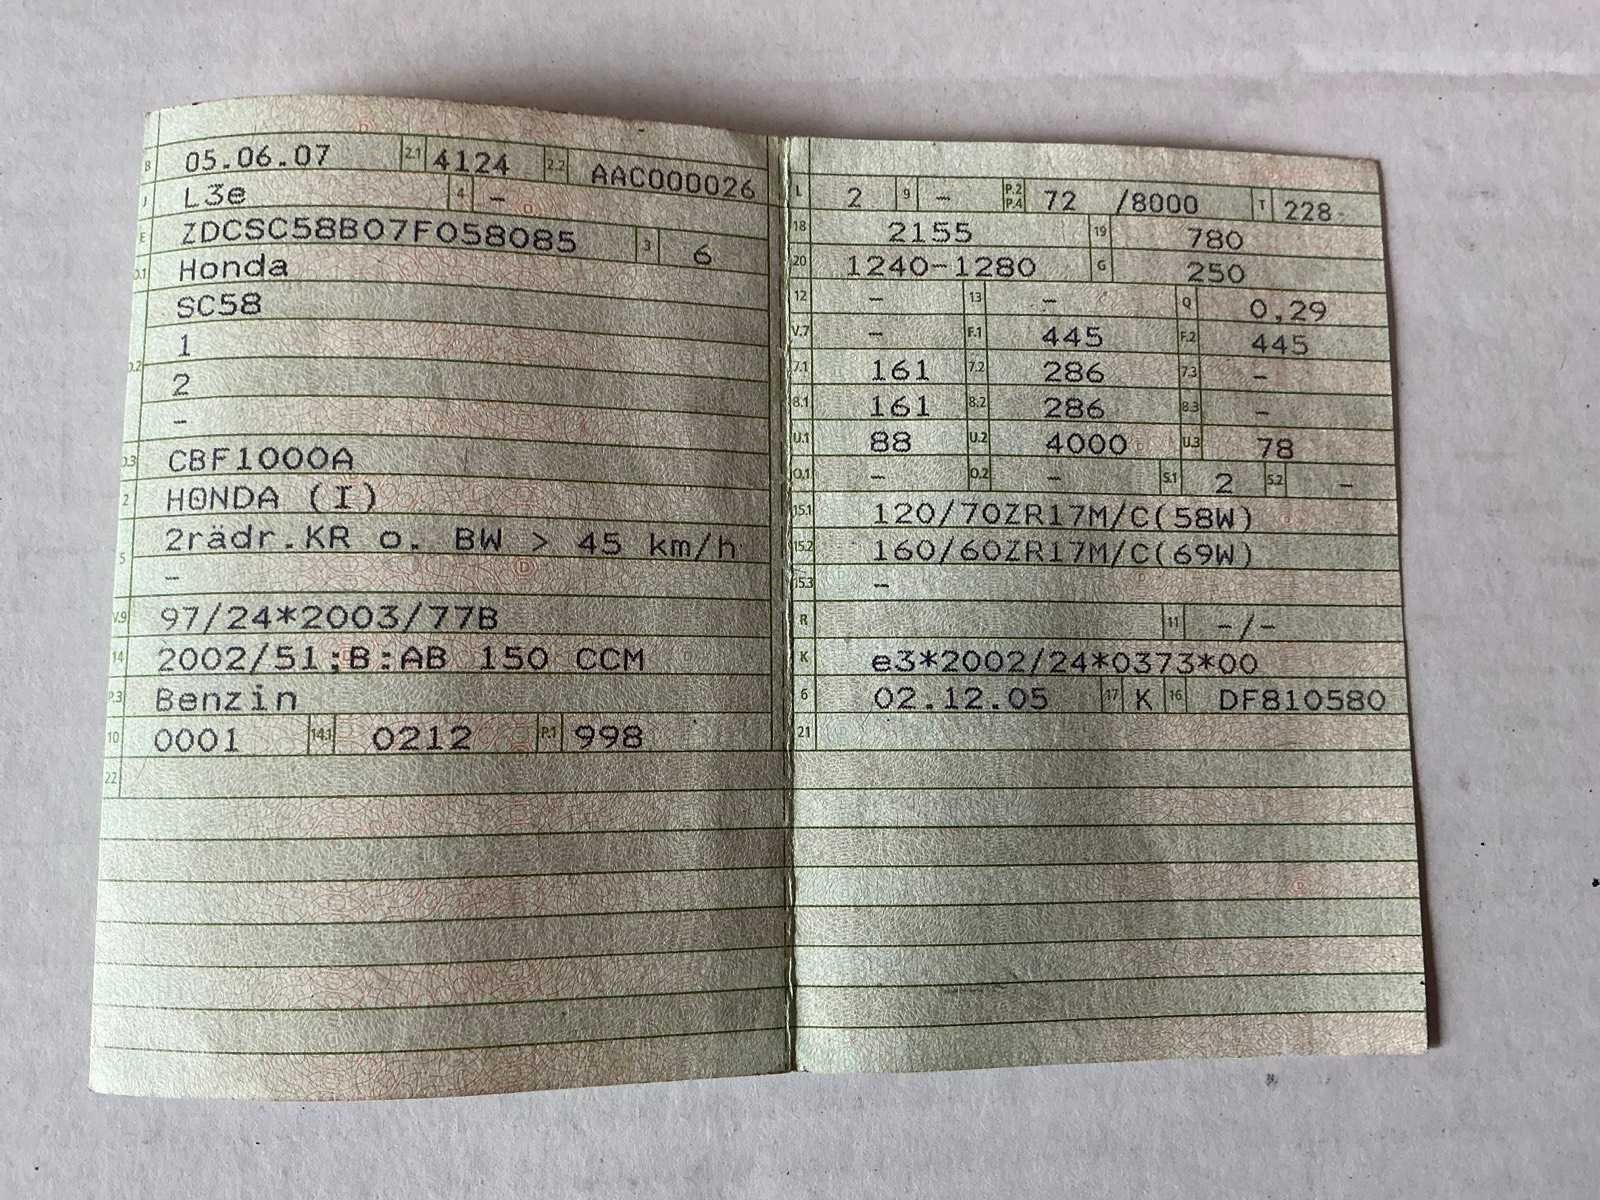 B 05.06.07 2.1 4124 2.2 AAC000026
J L3e 4 –
E ZDCSC58B07F058085 3 6
D.1 Honda
SC58
D.2 1
2
–
D.3 CBF1000A
2 HONDA (I)
5 2rädr.KR o. BW > 45 km/h
–
V.9 97/24*2003/77B
14 2002/51;B:AB 150 CCM
P.3 Benzin
10 0001 14.1 0212 P.1 998
22
L 2 9 – P.2 P.4 72 /8000 T 228
18 2155 19 780
20 1240-1280 G 250
12 – 13 – Q 0,29
V.7 – F.1 445 F.2 445
7.1 161 7.2 286 7.3 –
8.1 161 8.2 286 8.3 –
U.1 88 U.2 4000 U.3 78
O.1 – O.2 – S.1 2 S.2 –
15.1 120/70ZR17M/C(58W)
15.2 160/60ZR17M/C(69W)
15.3 –
R 11 –/–
K e3*2002/24*0373*00
6 02.12.05 17 K 16 DF810580
21